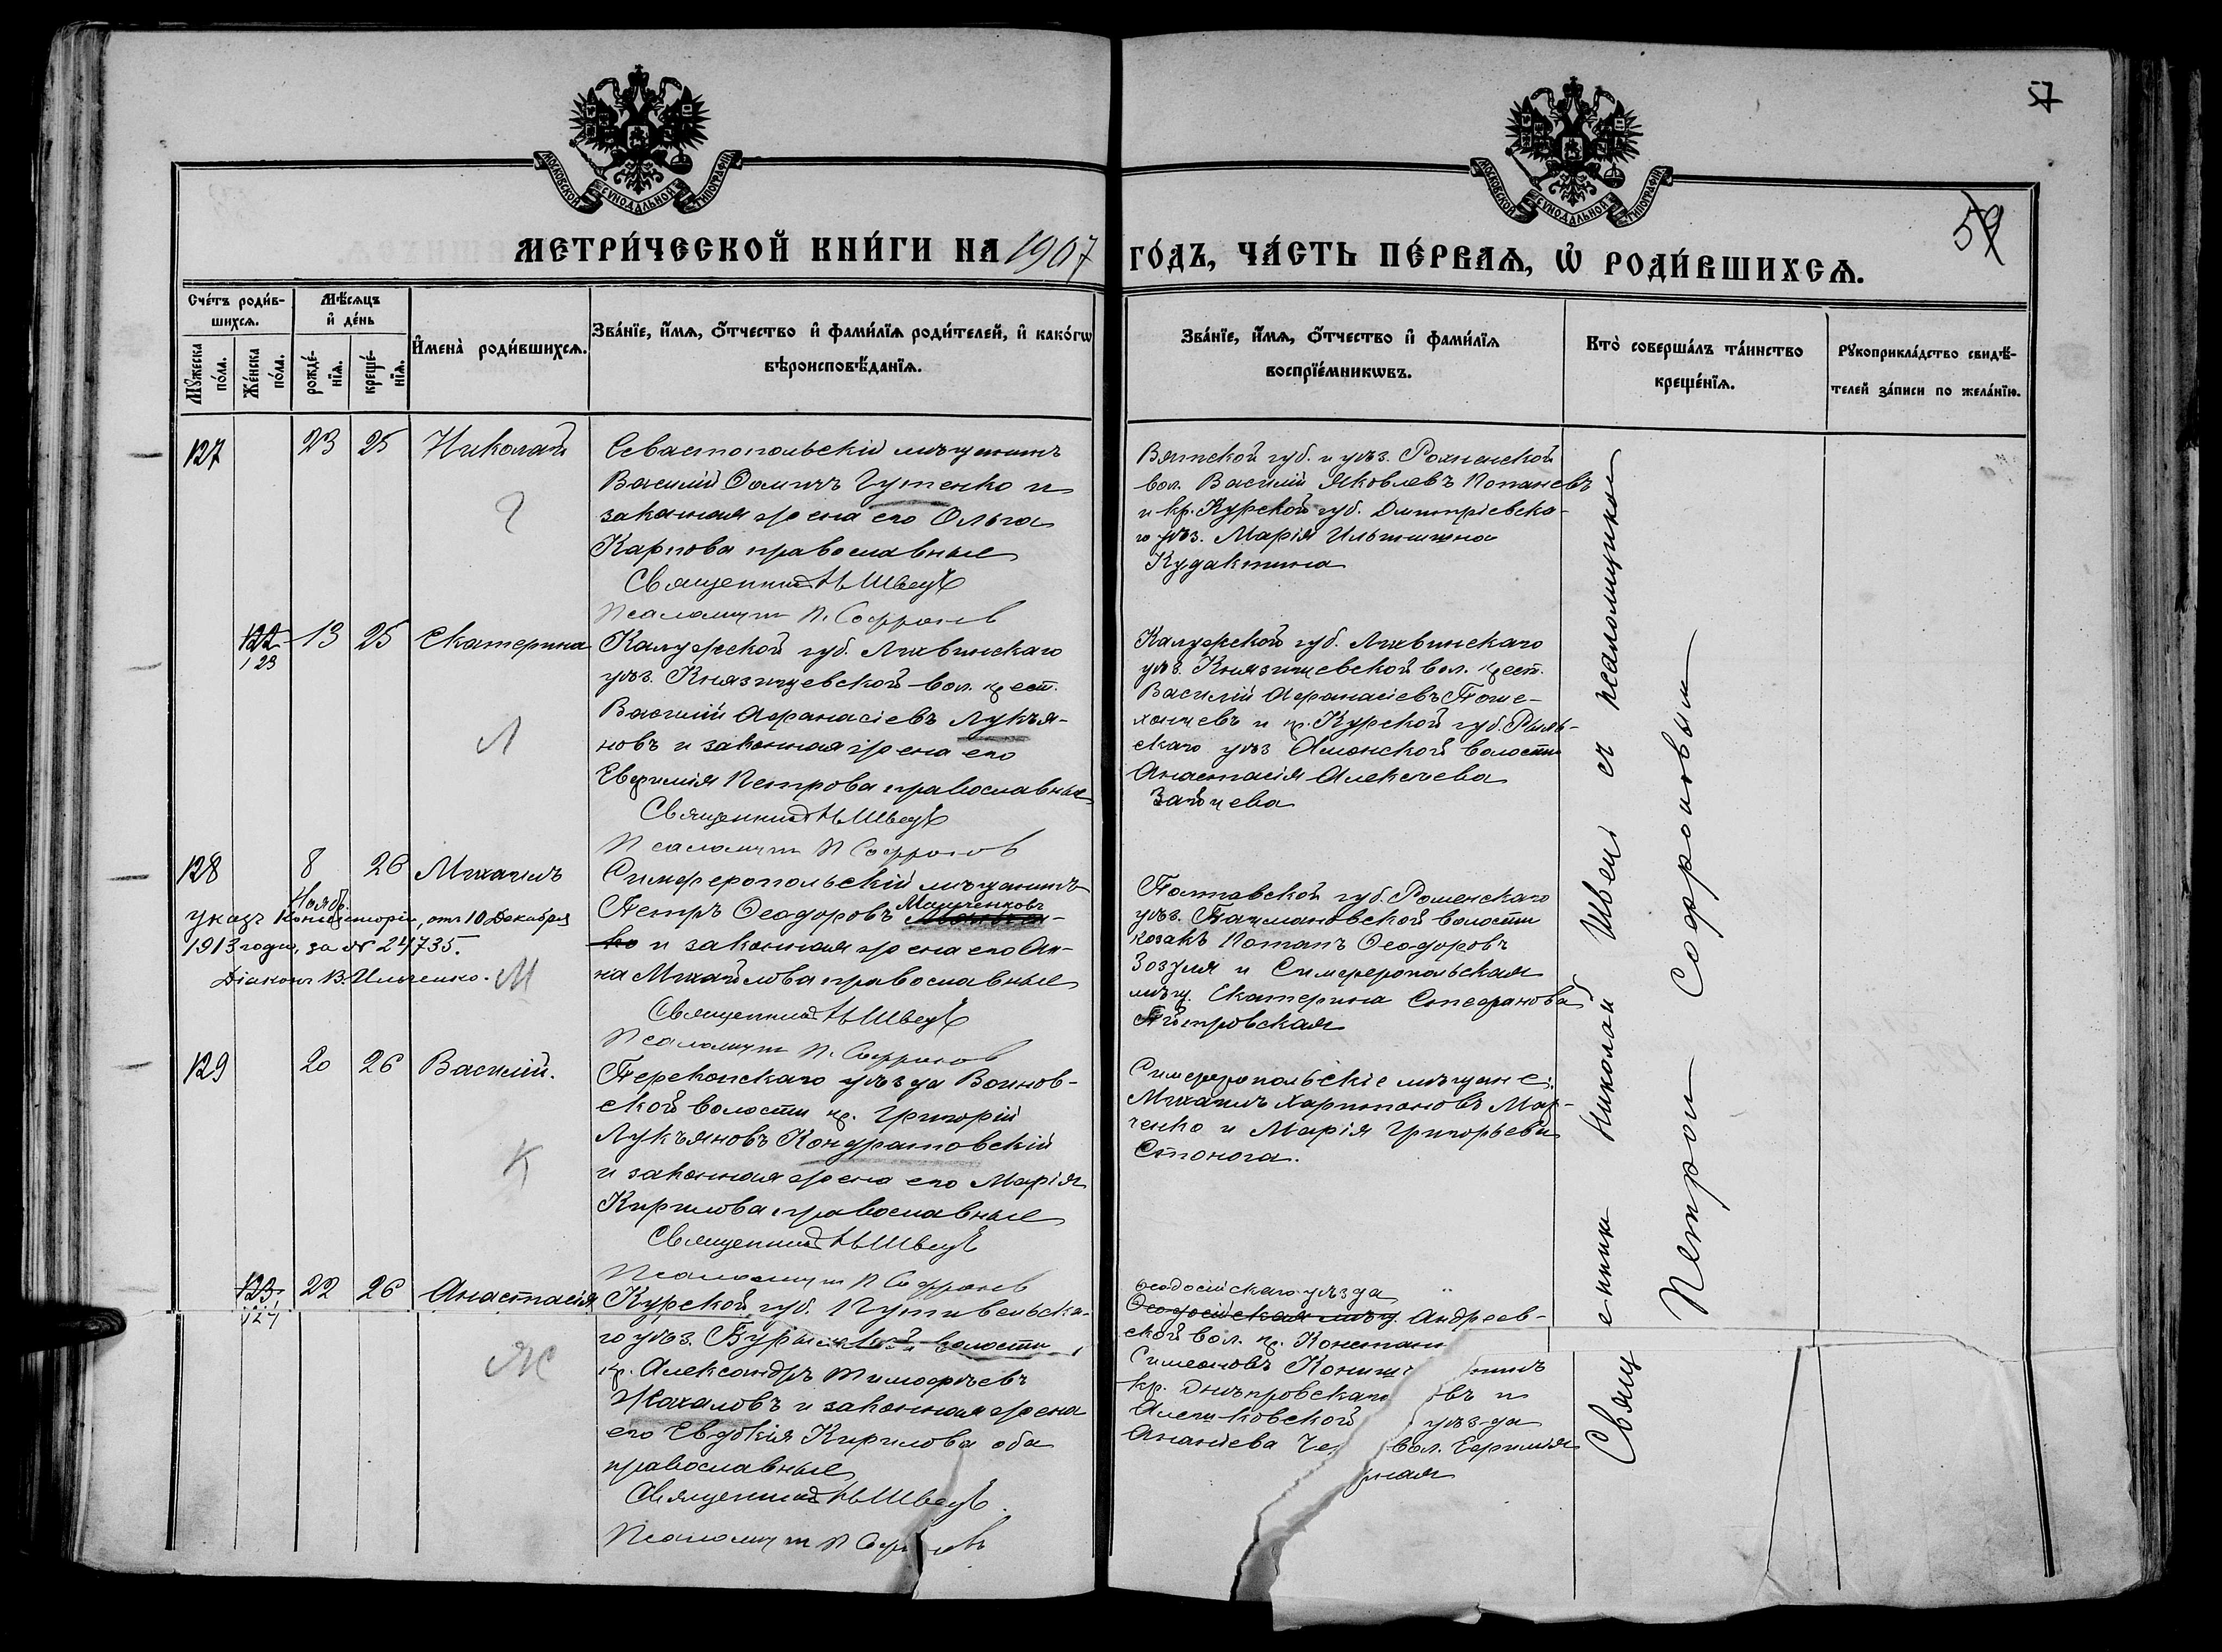 57
59
МОСКОВСКОЙ СѴНОДАЛЬНОЙ ТИПОГРАФІИ
МОСКОВСКОЙ СѴНОДАЛЬНОЙ ТИПОГРАФІИ
МЕТРИ́ЧЕСКОЙ КНИ́ГИ НА 1907
ГО́ДЪ, ЧА́СТЬ ПЕ́РВАѦ, Ѡ҆ РОДИ́ВШИХСѦ.
Сче́тъ роди́в-
шихсѧ.
Мꙋ́жеска по́ла.
Же́нска по́ла.
Мѣ́сѧцъ
и҆ де́нь
рожде́-
нїѧ.
креще́-
нїѧ.
И҆мена̀ роди́вшихсѧ.
Зва́нїе, и҆́мѧ, ѻ҆́тчество и҆ фами́лїѧ роди́телей, и҆ како́гѡ
вѣроисповѣ́данїѧ.
Зва́нїе, и҆́мѧ, ѻ҆́тчество и҆ фами́лїѧ
воспрїе́мникѡвъ.
Кто̀ соверша́лъ та́инство
креще́нїѧ.
Рꙋкоприкла́дство свидѣ́-
телей за́писи по жела́нїю.
127 23 25 Николай
Севастопольскій мѣщанинъ
Василій Ѳомичъ Гутенко и
законная жена его Ольга
Карпова православные
Священникъ Н Швецъ
Псаломщикъ П. Софронов
Вятской губ. и уѣз.
вол. Василій Яковлевъ Попаневъ
и кр. Курской губ. Дмитріевска-
го уѣз. Марія Ильинична
Кудакина
122 123 13 25 Екатерина
Калужской губ. Лихвинскаго
уѣз. Князищевской вол. крест.
Василій Афанасіевъ Лукъя-
новъ и законная жена его
Евфимія Петрова православные
Священникъ Н Швецъ
Псаломщикъ П Софронов
Л
Калужской губ. Лихвинскаго
уѣз. Князищевской вол. крест.
Василій Афанасіевъ Поше-
хонцевъ и кр. Курской губ. Рыль-
скаго уѣз Амонской волости
Анастасія Алексѣева
Зайцева
128 8 26 Михаилъ
Нояб.
Указъ Консисторіи, отъ 10 Декабря
1913 года, за № 24735.
Діаконъ В. Ильченко. М
Симферопольскій мѣщанинъ
Петръ Ѳеодоровъ Марченковъ
ко и законная жена его Ан-
на Михайлова православные
Священникъ Н Швецъ
Псаломщикъ П. Софронов
Полтавской губ. Роменскаго
уѣз. Бацмановской волости
козакъ Романъ Ѳеодоровъ
Зозуля и Симферопольская
мѣщ. Екатерина Стефанова
Пётровская
129 20 26 Василій.
Перекопскаго уѣзда Воинов-
ской волости кр. Григорій
Лукъяновъ Кондратовскій
и законная жена его Марія
Кирилова православные
Священникъ Н Швецъ
Псаломщикъ П Софронов
К
Симферопольскіе мѣщане:
Михаилъ Харитоновъ Мар-
ченко и Марія Григорьева
Стонога.
123 124 22 26 Анастасія
Курской губ. Путивельска-
го уѣз. Бурынской волости
кр. Александръ Тимофѣевъ
Жахаловъ и законная жена
его Евдокія Кирилова оба
православные
Священникъ Н Швецъ.
Псаломщикъ П Софроновъ
Ж
Ѳеодосійскаго уѣзда
Ѳеодосійская мѣщ. Андреев-
ской вол. кр. Констан
Симеоновъ
кр. Днѣпровскаго въ и
Алешковской уѣзда
Ананіева Че вол. Евфимія
рная
Священникъ Николай Швецъ съ псаломщикомъ
Петромъ Софроновымъ